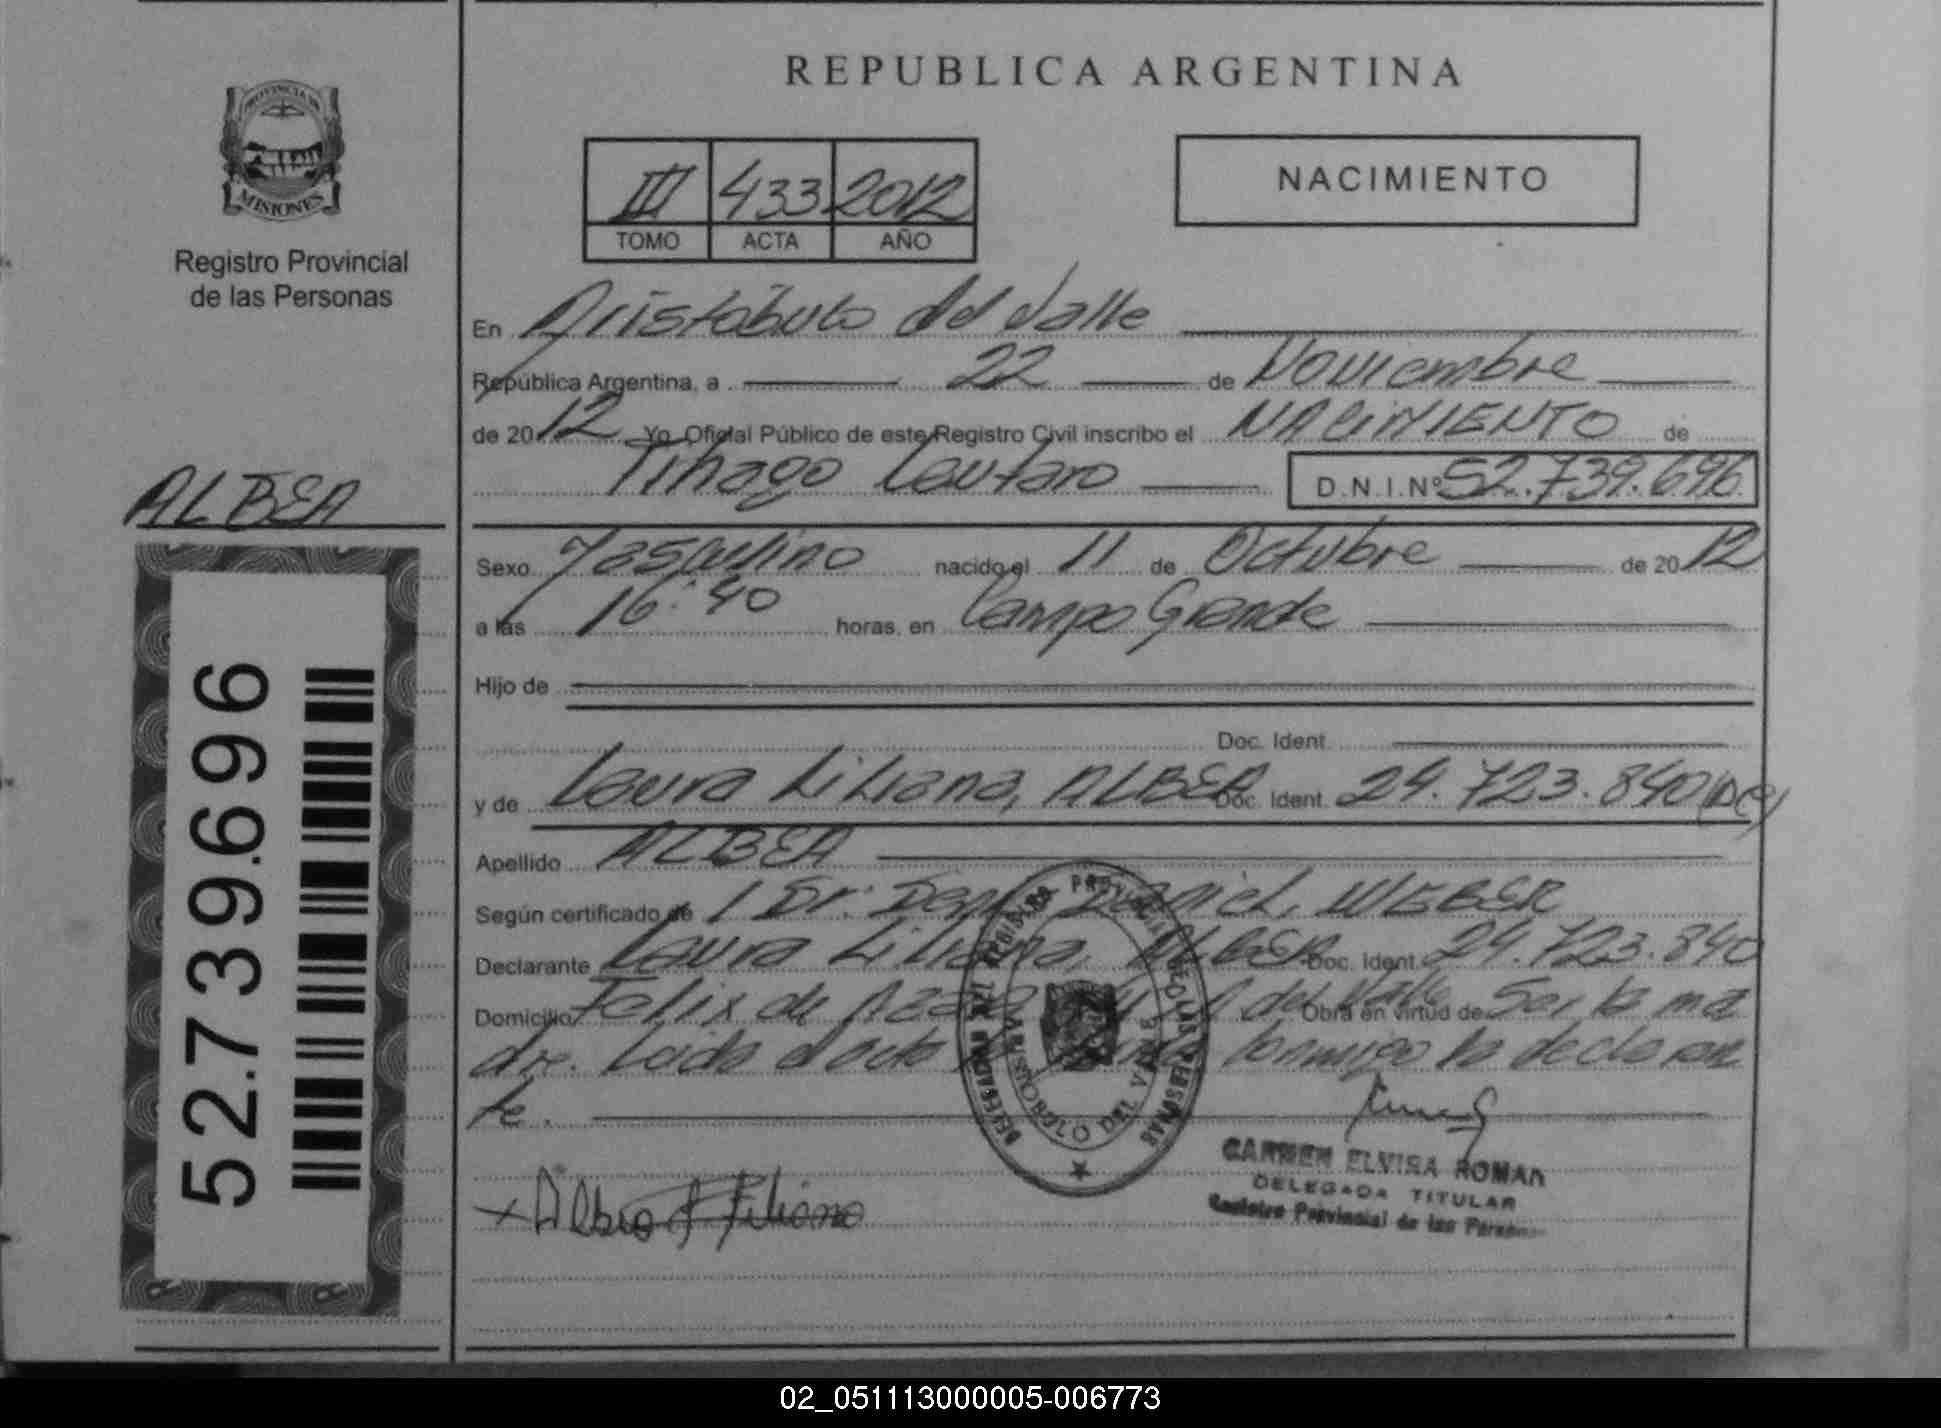 REPUBLICA ARGENTINA
PROVINCIA DE
MISIONES
Registro Provincial
de las Personas
III 433 2012
TOMO ACTA AÑO
NACIMIENTO
En Aristóbulo del Valle
República Argentina, a 22 de Noviembre
de 2012 Yo Oficial Público de este Registro Civil inscribo el NACIMIENTO de
Tihago Lautaro D.N.I.Nº 52.739.696
ALBEA
52.739.696
Sexo Masculino nacido el 11 de Octubre de 2012
a las 16:40 horas, en Campo Grande
Hijo de
Doc. Ident.
y de Laura Liliana, ALBEA Doc. Ident. 24.723.840
Apellido ALBEA
Según certificado de Dr. Daniel, WEBER
Declarante Laura Liliana, ALBEA Doc. Ident. 24.723.840
Domicilio Felix de A. del Valle Obra en virtud de Ser la ma
dre. Leida el acta conmigo la declaran
te.
REGISTRO PROVINCIAL DE LAS PERSONAS
ARISTOBULO DEL VALLE
CARMEN ELVIRA ROMAN
DELEGADA TITULAR
Registro Provincial de las Personas
02_051113000005-006773